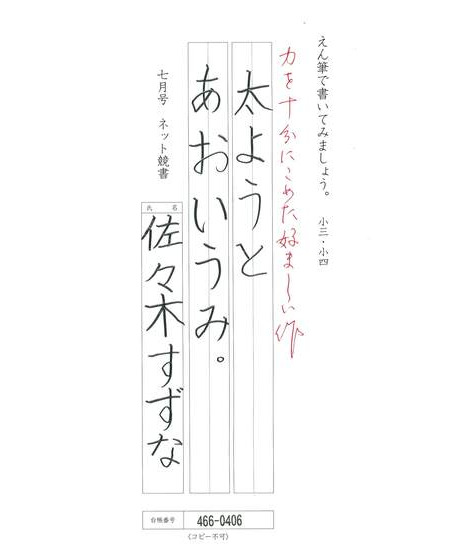 えん筆で書いてみましょう。 小三・小四
力を十分にこめた好ましい作
太ようと
あおいうみ。
七月号 ネット競書
氏名
佐々木すずな
台帳番号 466-0406
(コピー不可)